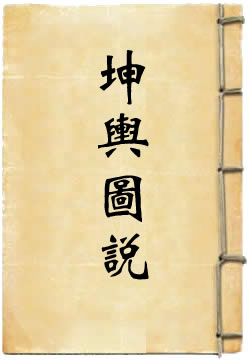 坤輿圖說